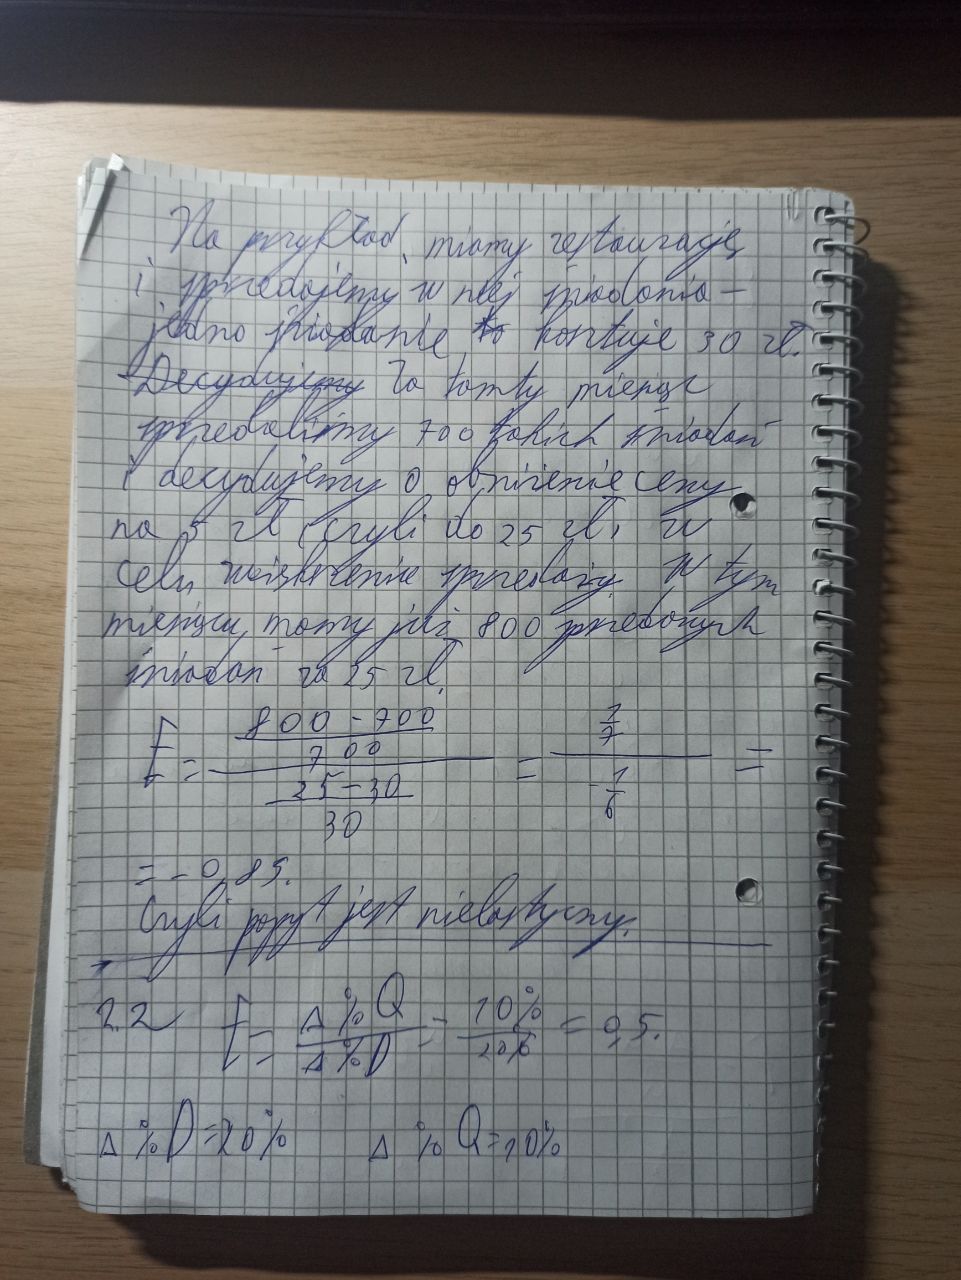 Na przykład, mamy restaurację
i sprzedajemy w niej śniadania –
jedno śniadanie to kosztuje 30 zł.
Decydujemy Za tamty miesiąc
sprzedaliśmy 700 takich śniadań
i decydujemy o obniżenie ceny
na 5 zł (czyli do 25 zł), w
celu zwiększenie sprzedaży. W tym
miesiącu mamy już 800 sprzedanych
śniadań za 25 zł.
E = \frac{\frac{800-700}{700}}{\frac{25-30}{30}} = \frac{\frac{1}{7}}{-\frac{1}{6}} =
= -0,85.
Czyli popyt jest nielastyczny.
2.2 E = \frac{Δ%Q}{Δ%D} = \frac{10%}{20%} = 0,5.
Δ%D=20% Δ%Q=10%